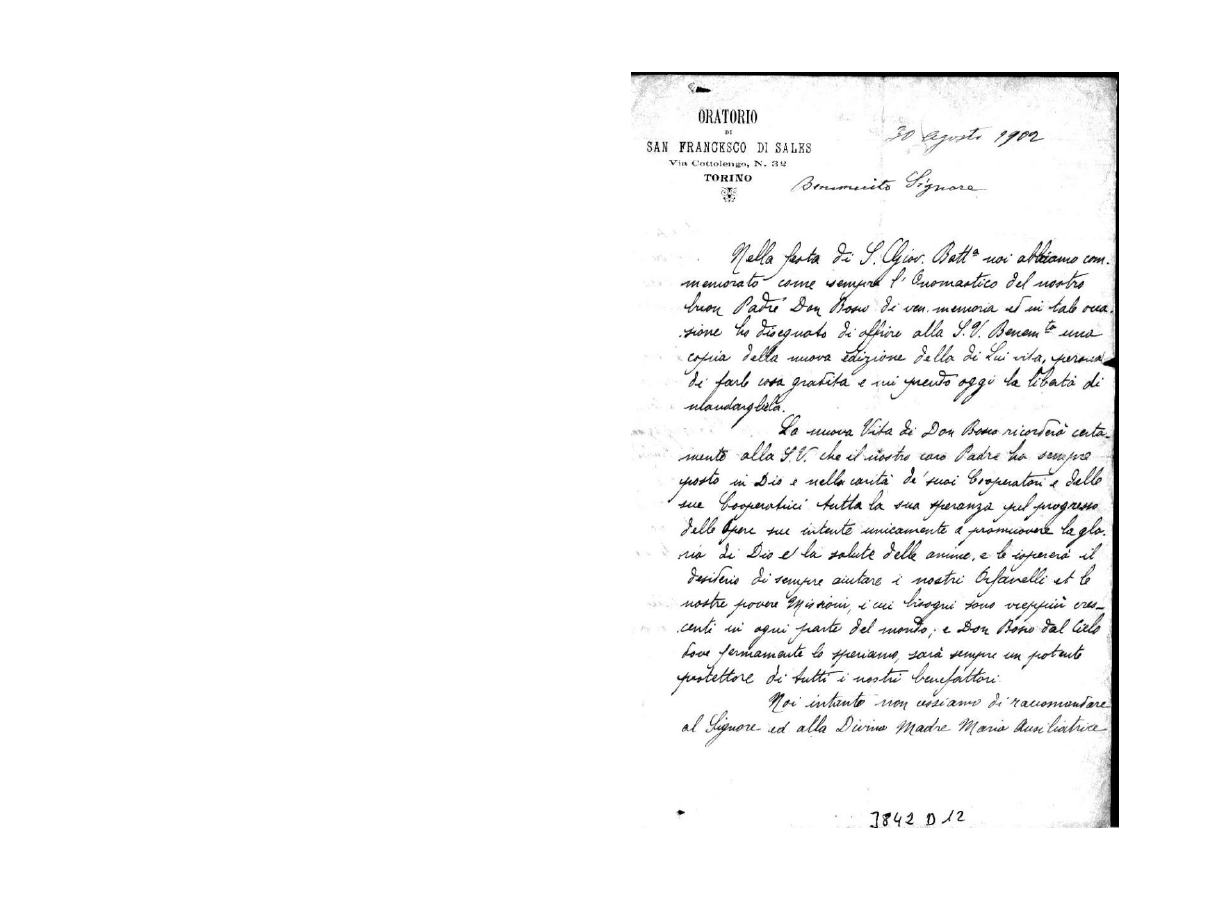 ORATORIO
DI
SAN FRANCESCO DI SALES
Via Cottolengo, N. 32
TORINO
30 Agosto 1902
Benemerito Signore
Nella festa di S. Giov. Batta noi abbiamo com-
memorato come sempre l'Onomastico del nostro
buon Padre Don Bosco di ven. memoria ed in tale occa-
sione ho disegnato di offrire alla S. V. Benemta una
copia della nuova edizione della di Lui vita, persuaso
di farle cosa gradita e mi prendo oggi la libertà di
mandargliela.
La nuova Vita di Don Bosco ricorderà certa-
mente alla S. V. che il nostro caro Padre ha sempre
posto in Dio e nella carità de' suoi Cooperatori e delle
sue Cooperatrici tutta la sua speranza pel progresso
delle Opere sue intente unicamente a promuovere la glo-
ria di Dio e la salute delle anime, e le ispirerà il
desiderio di sempre aiutare i nostri Orfanelli et le
nostre povere Missioni, i cui bisogni sono vieppiù cres-
centi in ogni parte del mondo; e Don Bosco dal Cielo
dove fermamente lo speriamo, sarà sempre un potente
protettore di tutti i nostri benefattori.
Noi intanto non cessiamo di raccomandare
al Signore ed alla Divina Madre Maria Ausiliatrice
3842 D 12